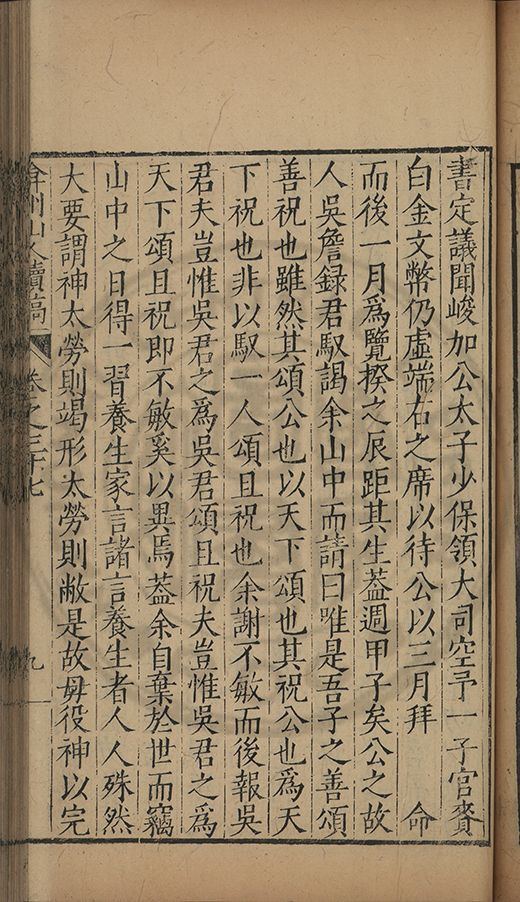 書定議聞峻加公太子少保領大司空予一子官賚
白金文幣仍虛端右之席以待公以三月拜　命
而後一月爲覽揆之辰距其生蓋週甲子矣公之故
人吳詹錄君馭謁余山中而請曰唯是吾子之善頌
善祝也雖然其頌公也以天下頌也其祝公也爲天
下祝也非以馭一人頌且祝也余謝不敏而後報吳
君夫豈惟吳君之爲吳君頌且祝夫豈惟吳君之爲
天下頌且祝即不敏奚以異焉蓋余自棄於世而竊
山中之日得一習養生家言諸言養生者人人殊然
大要謂神太勞則竭形太勞則敝是故毋役神以完
弇州山人續稿　卷之三十七　九